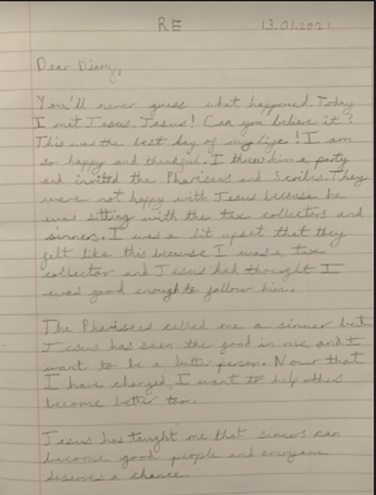 RE 13.01.2021
Dear Diary,
You'll never guess what happened. Today
I met Jesus. Jesus! Can you believe it?
This was the best day of my life! I am
so happy and thankful. I threw him a party
and invited the Pharisees and Scribes. They
were not happy with Jesus because he
was sitting with the tax collectors and
sinners. I was a bit upset that they
felt like this because I was a tax
collector and Jesus had thought I
was good enough to follow him.
The Pharisees called me a sinner but
Jesus has seen the good in me and I
want to be a better person. Now that
I have changed, I want to help others
become better too.
Jesus has taught me that sinners can
become good people and everyone
deserves a chance.